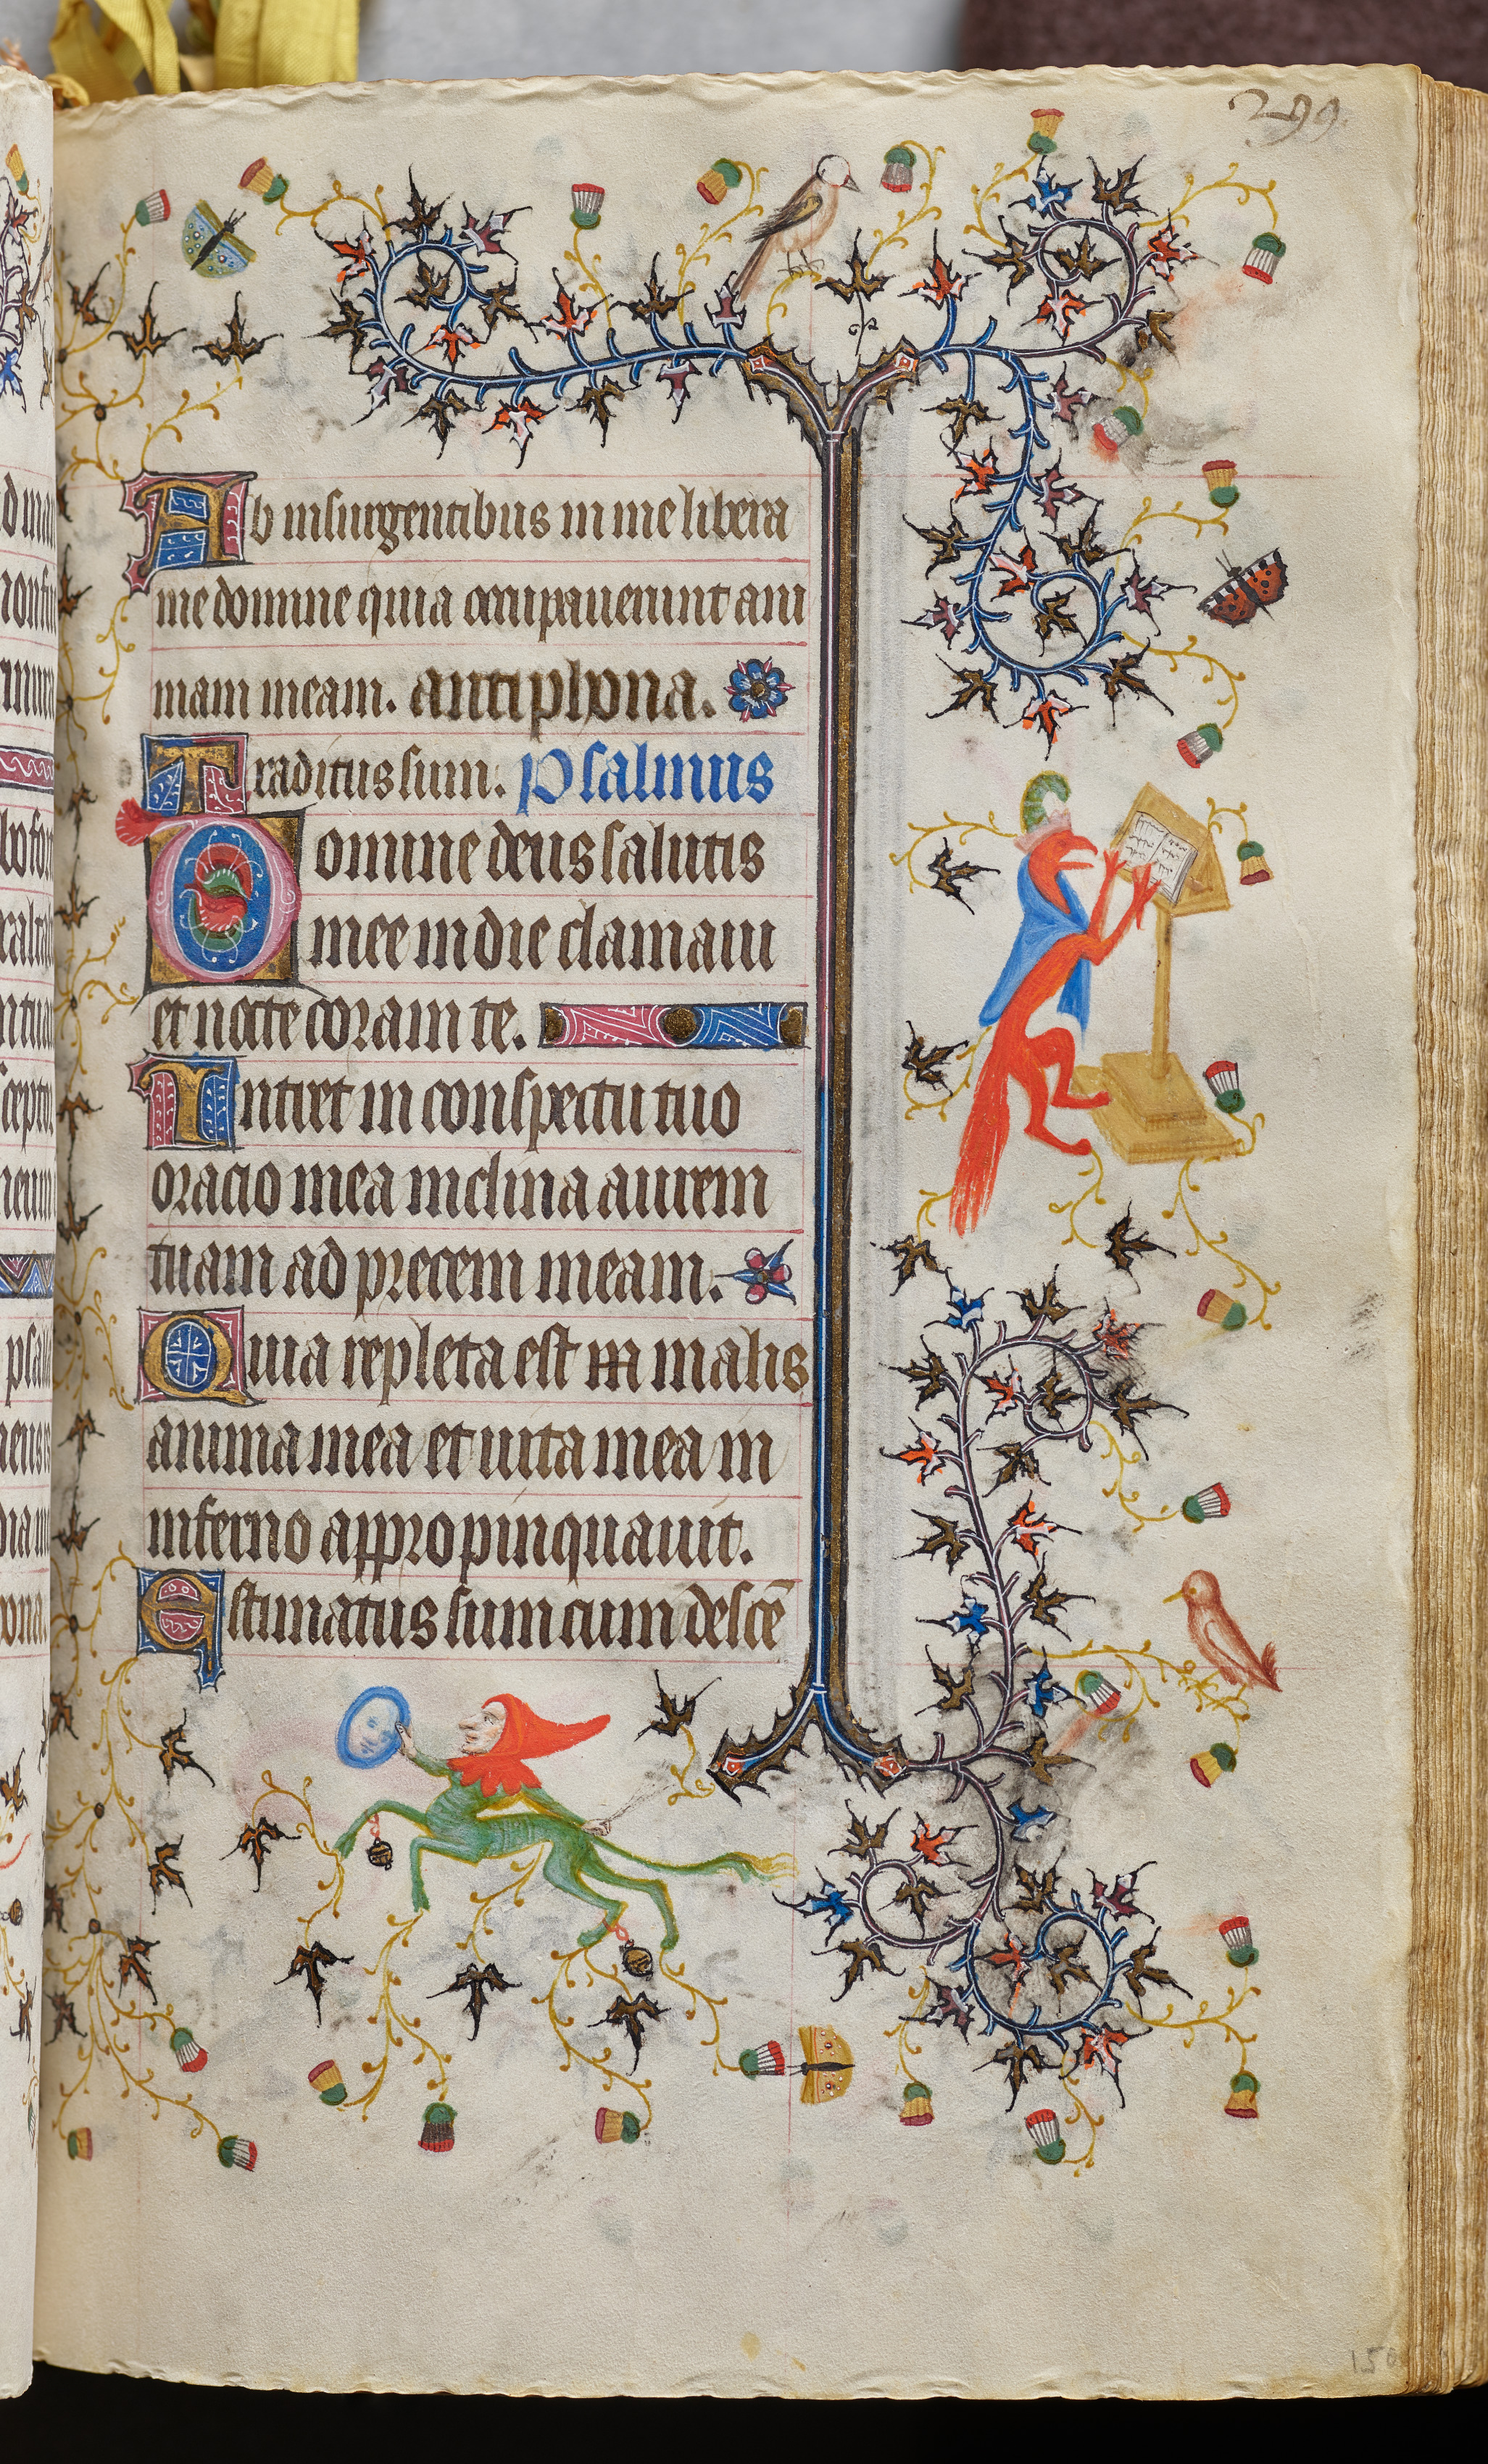 299.
Ab insurgentibus in me libera
me domine quia occupauerunt ani
mam meam. antiphona.
Traditus sum. psalmus
Domine deus salutis
mee in die clamaui
et nocte coram te.
Intret in conspectu tuo
oracio mea inclina aurem
tuam ad precem meam.
Quia repleta est in malis
anima mea et uita mea in
inferno appropinquauit.
Estimatus sum cum descē
150